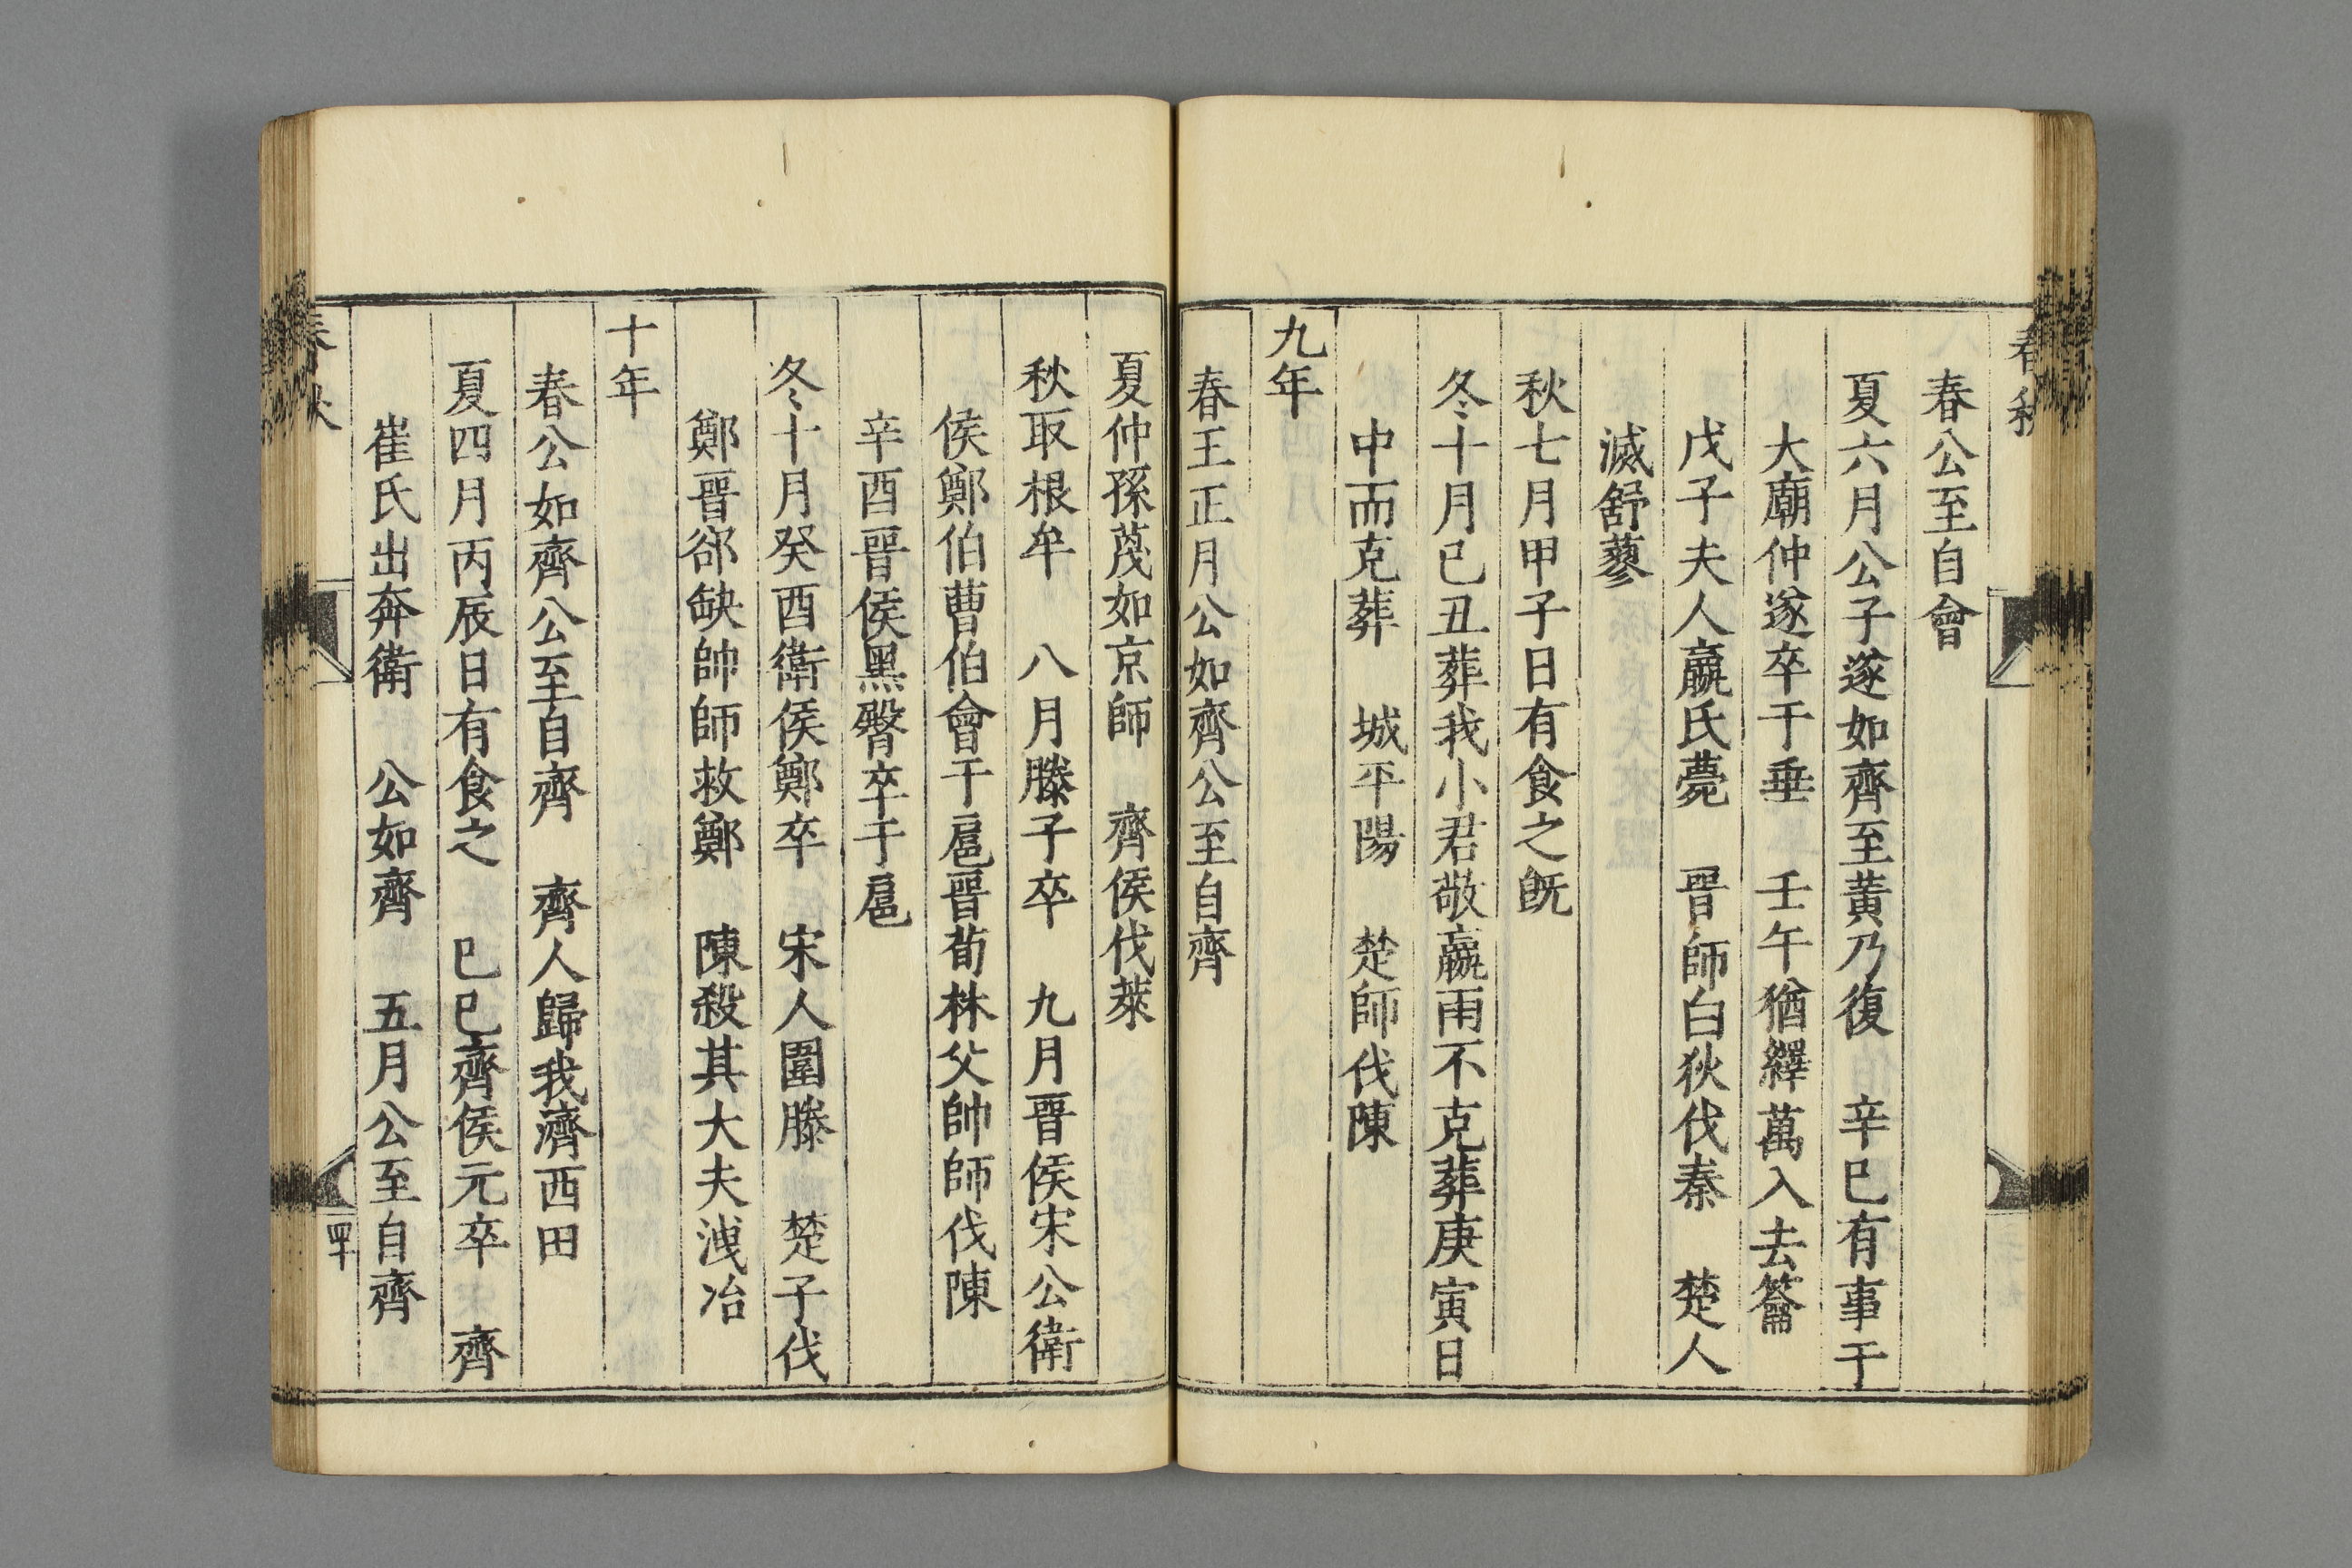 春秋
春公至自會
夏六月公子遂如齊至黃乃復　辛巳有事于
大廟仲遂卒于垂　壬午猶繹萬入去籥
戊子夫人嬴氏薨　晉師白狄伐秦　楚人
滅舒蓼
秋七月甲子日有食之既
冬十月己丑葬我小君敬嬴雨不克葬庚寅日
中而克葬　城平陽　楚師伐陳
九年
春王正月公如齊公至自齊
夏仲孫蔑如京師　齊侯伐萊
秋取根牟　八月滕子卒　九月晉侯宋公衛
侯鄭伯曹伯會于扈晉荀林父帥師伐陳
辛酉晉侯黑臀卒于扈
冬十月癸酉衛侯鄭卒　宋人圍滕　楚子伐
鄭晉郤缺帥師救鄭　陳殺其大夫洩冶
十年
春公如齊公至自齊　齊人歸我濟西田
夏四月丙辰日有食之　己巳齊侯元卒　齊
崔氏出奔衛　公如齊　五月公至自齊
春秋
四十